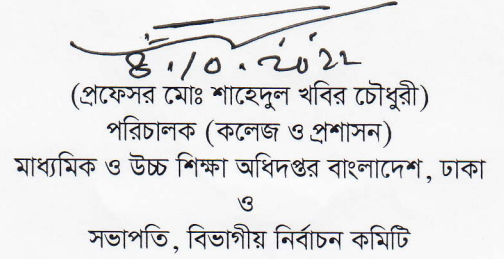 8.10.2022
(প্রফেসর মোঃ শাহেদুল খবির চৌধুরী)
পরিচালক (কলেজ ও প্রশাসন)
মাধ্যমিক ও উচ্চ শিক্ষা অধিদপ্তর বাংলাদেশ, ঢাকা
ও
সভাপতি, বিভাগীয় নির্বাচন কমিটি